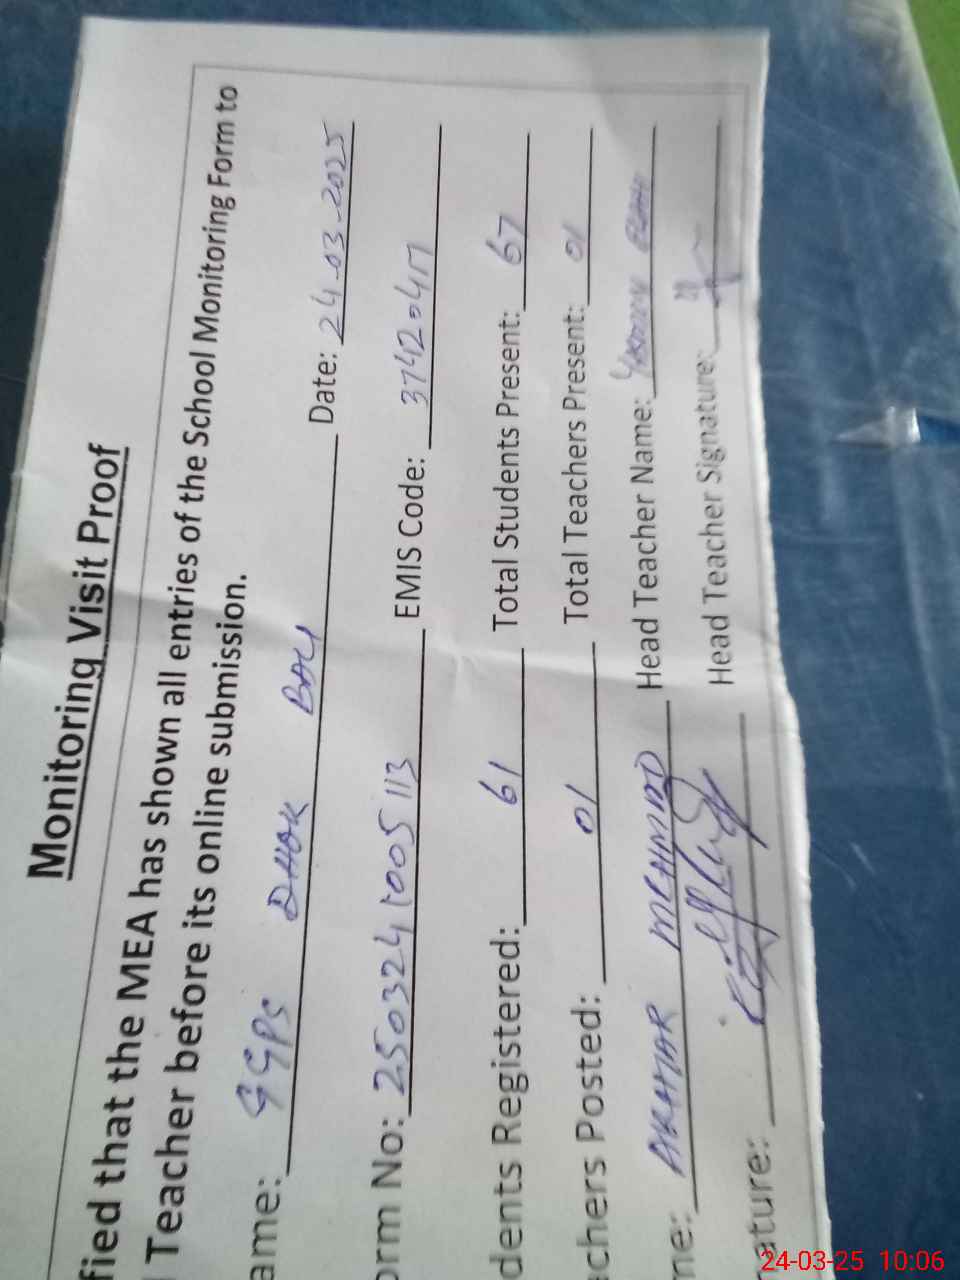 Monitoring Visit Proof
fied that the MEA has shown all entries of the School Monitoring Form to
Teacher before its online submission.
ame: GGPS DHOK BALI Date: 24-03-2025
orm No: 2503241005113 EMIS Code: 37420417
dents Registered: 61 Total Students Present: 67
chers Posted: 01 Total Teachers Present: 01
me: MEHMOOD Head Teacher Name:
ature: Head Teacher Signature:
24-03-25 10:06